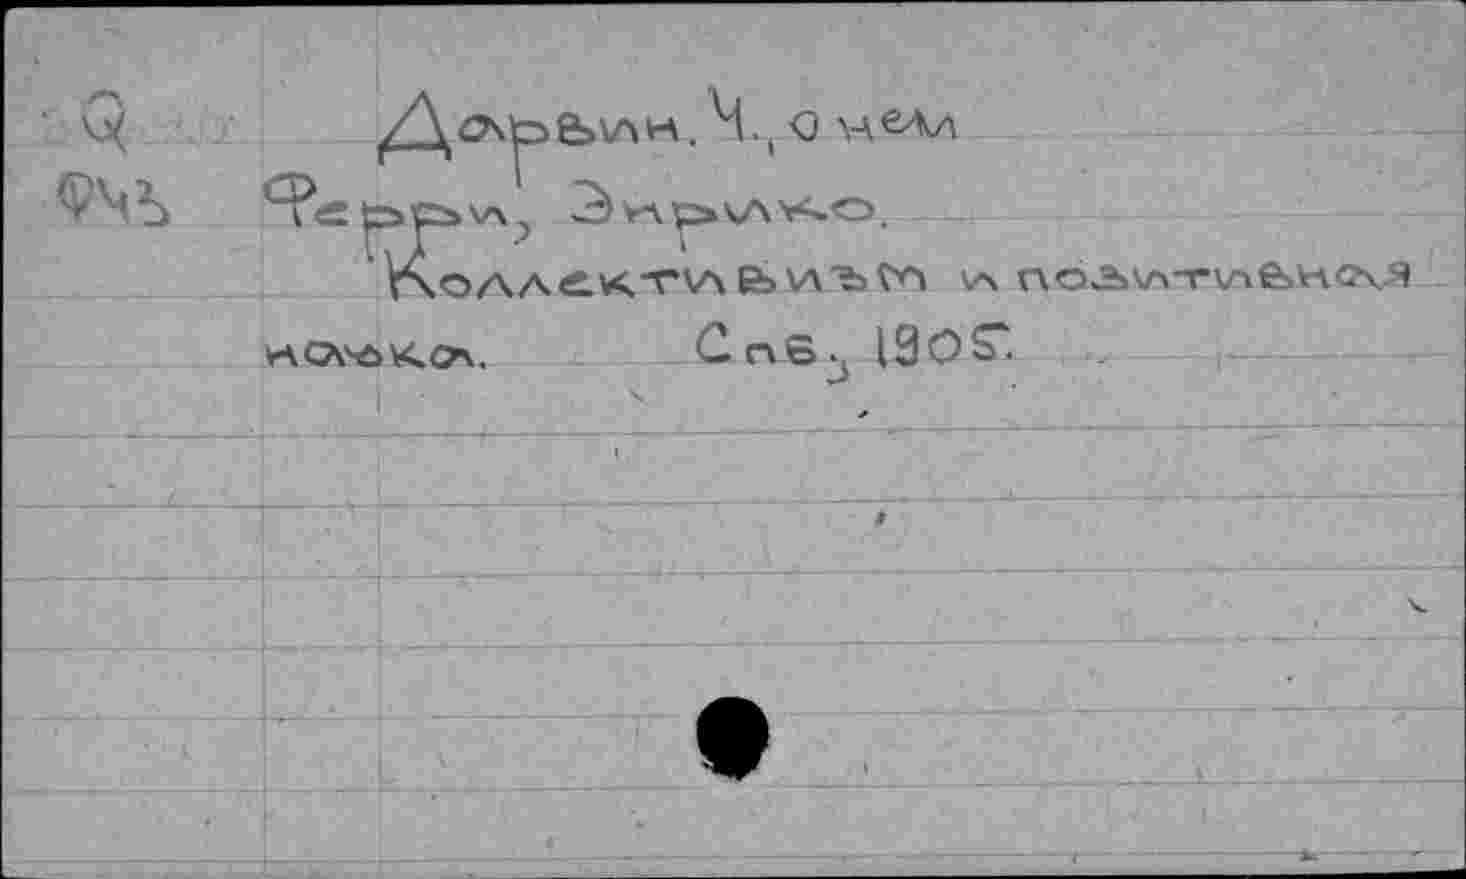 Q Дарвин. Ч., о нем
ФЧЪ Ферри, Энрико.
Коллективизм и позитивная
наука. Спб., 1905.